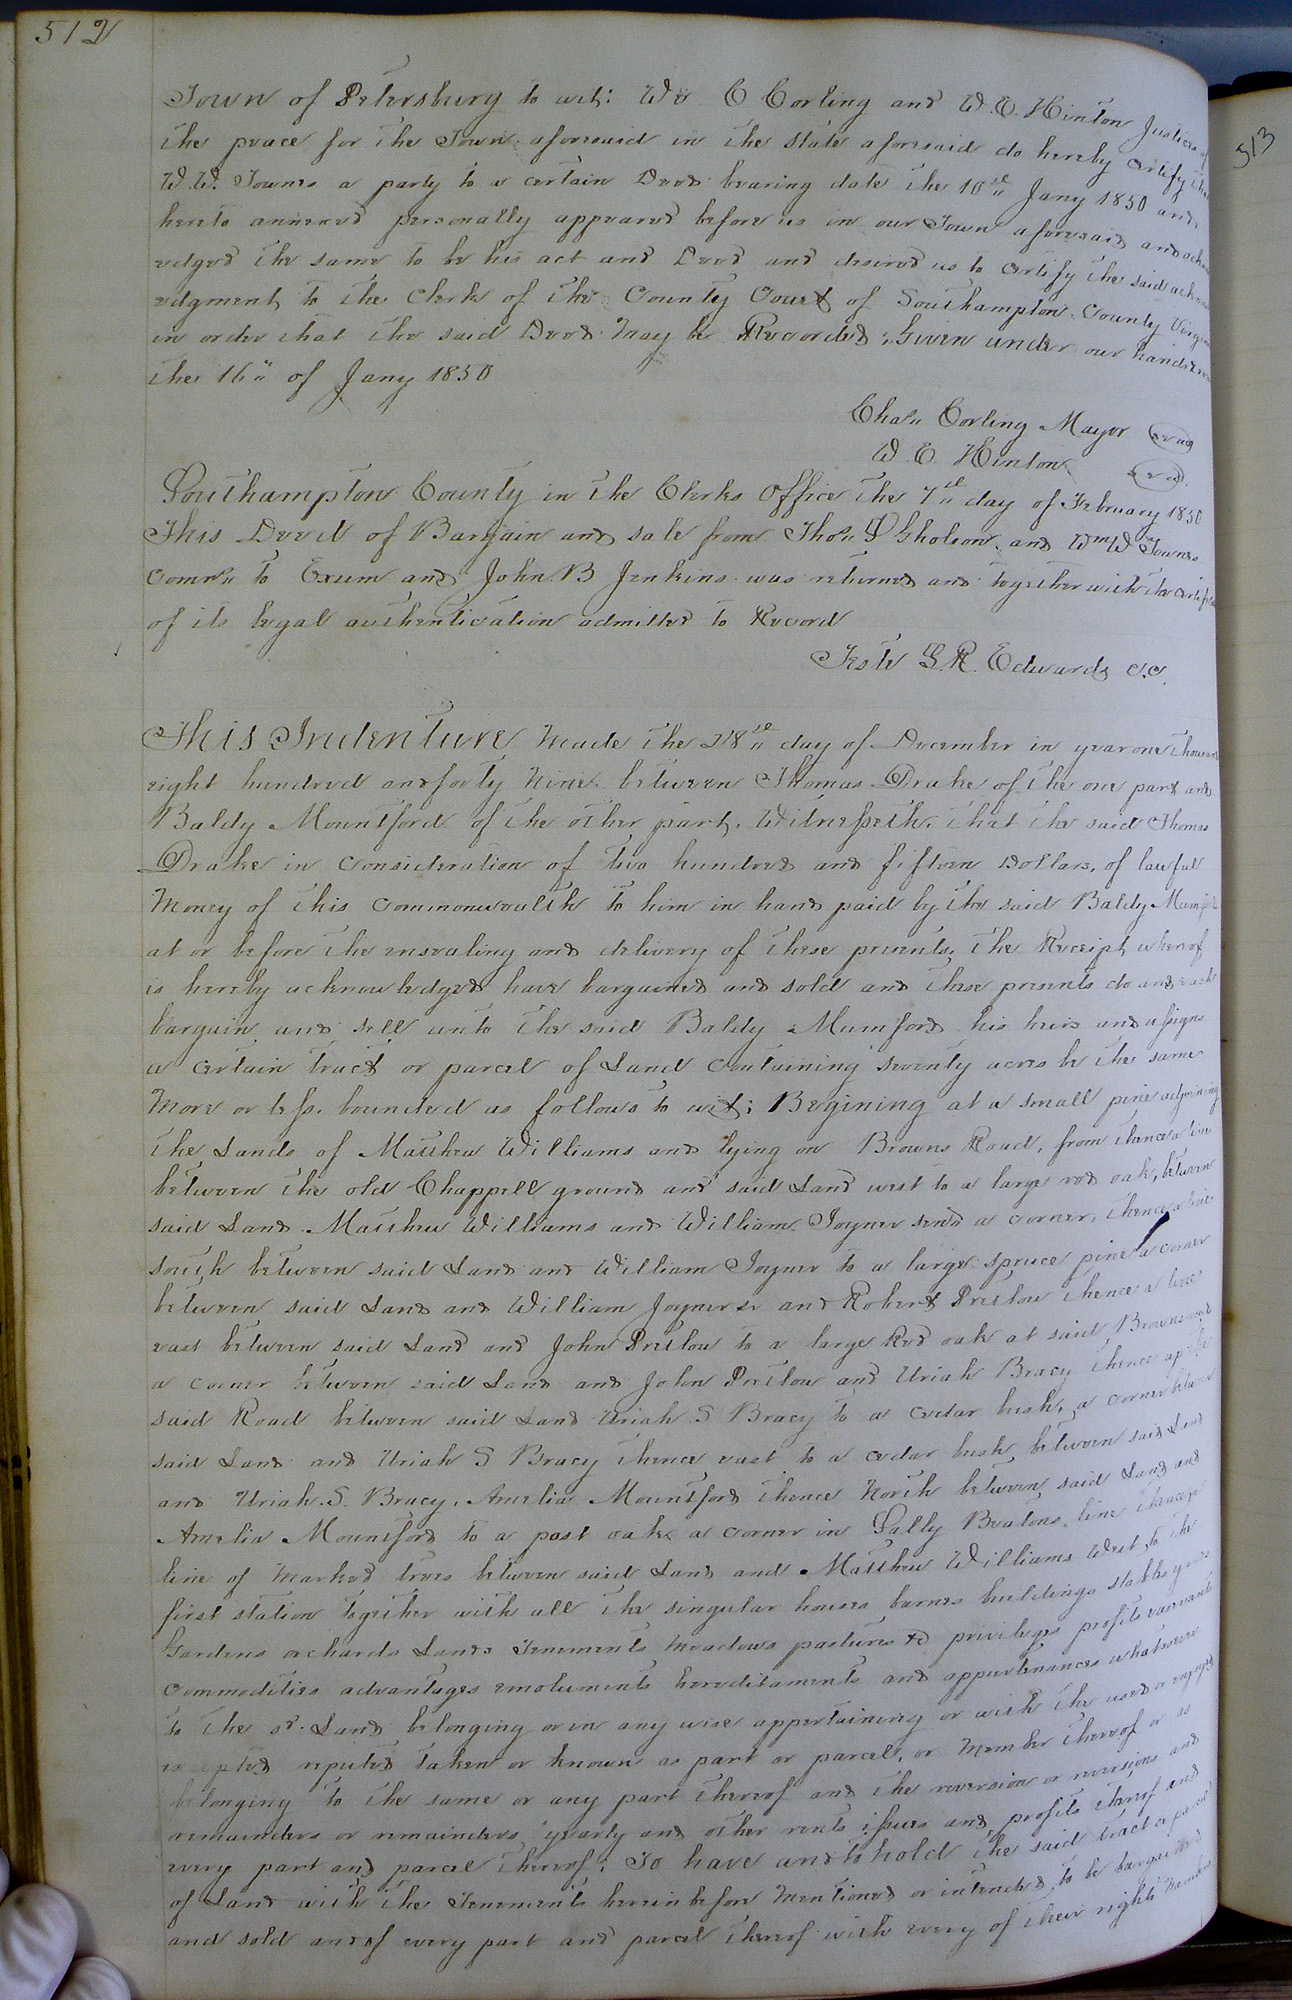 512
Town of Petersburg to wit: We C Corling and W. E. Hinton Justices of
the peace for the Town aforesaid in the State aforesaid do hereby certify that
W. W. Townes a party to a certain Deed bearing date the 10th Jany 1850 and
hereto annexed personally appeared before us in our Town aforesaid and ackno
edged the same to be his act and Deed and desired us to certify the said acknow
edgment, to the Clerk of the County Court of Southampton County Virginia
in order that the said Deed may be Recorded, Given under our hands &
the 16" of Jany 1850
Chas" Corling Mayor seal
W. E. Hinton seal
Southampton County in the Clerks Office the 7th day of February 1850
This Deed of Bargain and sale from Thos" S Gholson and Wm W Townes
Comrs" to Exum and John B Jenkins was returned and together with the certificate
of its legal authentication admitted to Record
Teste L. R. Edwards C.C.
This Indenture Made the 28th day of December in year one thousand
eight hundred and forty Nine between Thomas Drake of the one part and
Baldy Mountford of the other part. Witnesseth. that the said Thomas
Drake in consideration of two hundred and fifteen Dollars, of lawful
Money of this Commonwealth to him in hand paid by the said Baldy Mumford
at or before the ensealing and delivery of these presents, the Receipt whereof
is hereby acknowledged have bargained and sold and these presents do and each
bargain and sell unto the said Baldy Mumford his heirs and assigns
a certain tract or parcel of Land Containing seventy acres be the same
More or less. bounded as follows to wit; Begining at a small pine adjoining
the Lands of Matthew Williams and lying on Browns Road, from thence a line
between the old Chappell ground and said Land west to a large red oak, between
said Land Matthew Williams and William Joyner send a corner, thence a line
south between said Land and William Joyner to a large spruce pine a corner
between said Land and William Joyner sr and Robert Pretlow thence a line
east between said Land and John Pretlow to a large Red oak at said Browns road
a corner between said Land and John Pretlow and Uriah Bracy thence up the
said Road between said Land Uriah S Bracy to a cedar bush, a corner between
said Land and Uriah S Bracy thence east to a cedar bush between said Land
and Uriah. S. Bracy, Amelia Mountford thence North between said Land and
Amelia Mountford to a post oak a corner in Sally Beatons line thence a
line of Marked trees between said Land and Matthew Williams West, to the
first station together with all the singular houses barnes buildings stables yards
Gardens orchards Lands Tenements Meadows pastures &c privileges profits easements
commodities advantages emoluments hereditaments and appurtenances whatsoever
to the sd. Land belonging or in any wise appertaining or with the used or enjoyed
excepted reputed taken or known as part or parcel, or Member thereof or as
belonging to the same or any part thereof and the reversion or reversions and
remainders or remainders, yearly and other rents issues and profits thereof and
every part and parcel thereof; To have and to hold the said tract or parcel
of Land with the Tenements herein before Mentioned or intended, to be bargained
and sold and of every part and parcel thereof with every of their rights Members
513